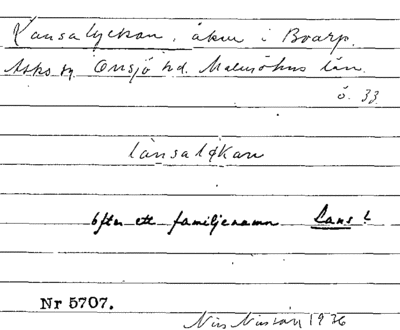 Lansalyckan, åker i Boarp.
Asks sn Onsjö hd. Malmöhus län.
ö. 33
lànsalykan
Efter ett familjenamn Lans?
Nr 5707.
Nils Nilsson 1936